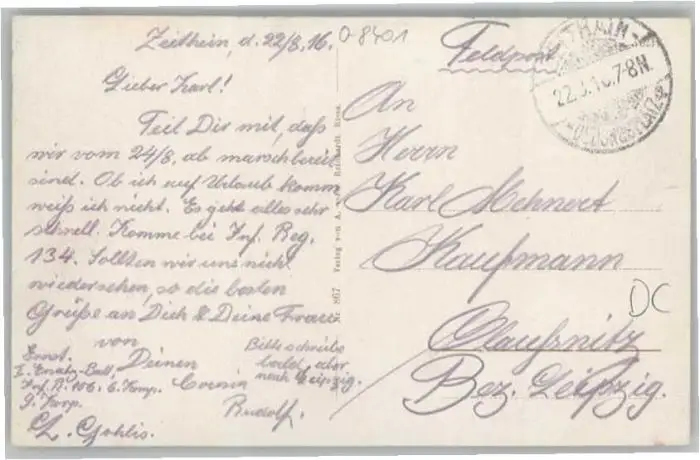 Zeithein, d. 22/8.16.
O-8401
Lieber Karl!
Teil Dir mit, daß
wir vom 24/8. ab marschbereit
sind. Ob ich auf Urlaub komm
weiß ich nicht. Es geht alles sehr
schnell. Komme bei Inf. Reg.
134. Sollten wir uns nich
wiedersehen, so die besten
Grüße an Dich & Deine Frau
von
Deinen
Cousin
Rudolf.
Bitte schreibe
bald, aber
nach Leipzig.
Ernst.
I. Ersatz-Batl.
Inf. R. 106. 6. Komp.
9. Korp.
L. Gohlis.
Nr. 867 Verlag von A. Reinhardt, Riesa
Feldpost
22.8.16.7-8N.
An
Herrn
Karl Mehnert
Kaufmann
Olaußnitz
Bez. Leipzig.
DC